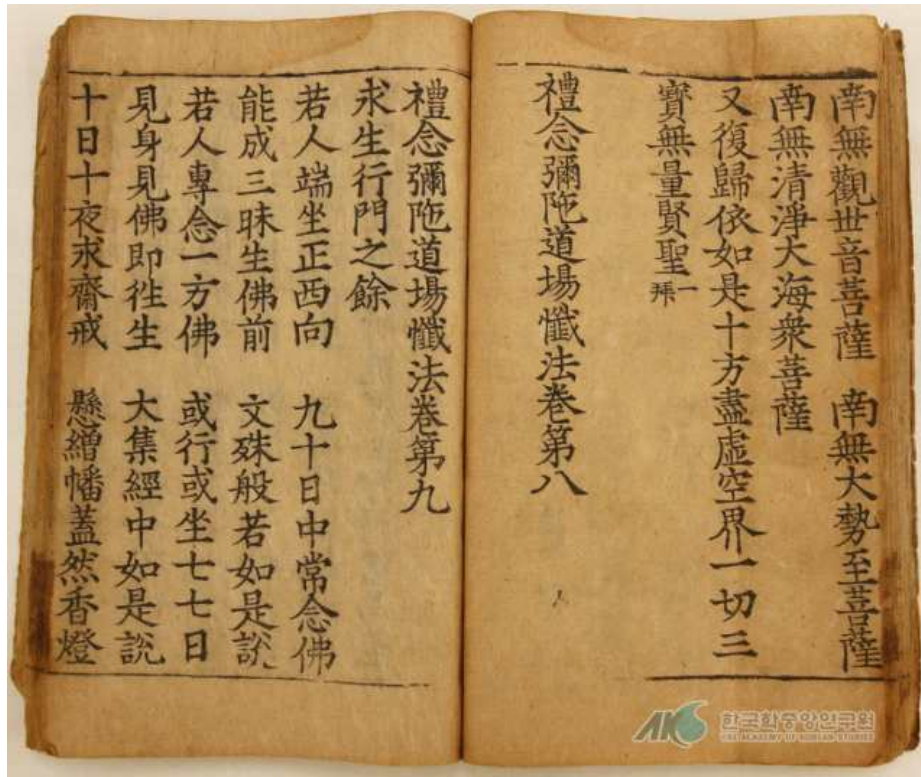 南無觀世音菩薩　南無大勢至菩薩
南無清淨大海衆菩薩
又復歸依如是十方盡虛空界一切三
寶無量賢聖一拜
禮念彌陁道場懺法卷第八
禮念彌陁道場懺法卷第九
求生行門之餘
若人端坐正西向　九十日中常念佛
能成三昧生佛前　文殊般若如是說
若人專念一方佛　或行或坐七七日
見身見佛即徃生　大集經中如是說
十日十夜求齋戒　懸繒幡蓋然香燈
AKS 한국학중앙연구원
THE ACADEMY OF KOREAN STUDIES